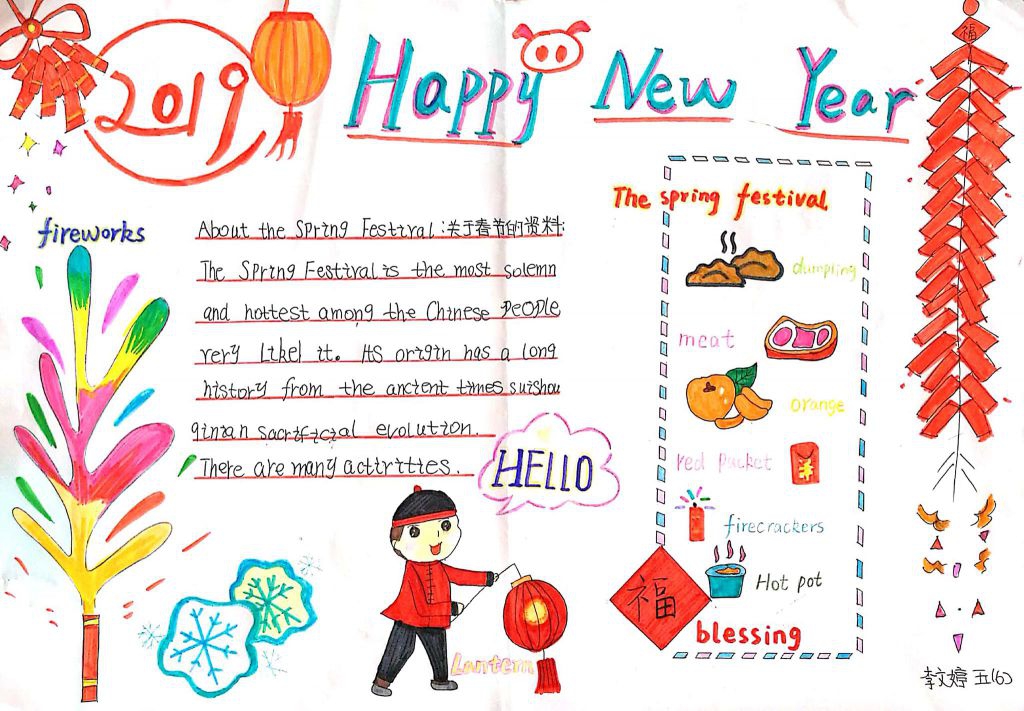 2019
Happy New Year
福
fireworks
About the Spring Festival:关于春节的资料:
The Spring Festival is the most solemn
and hottest among the Chinese People
very Likel it. Hs origin has a long
history from the ancient times suishou
qinian sacrificial evolution.
There are many activities.
HELLO
Lantern
The spring festival
dumpling
meat
orange
red packet
firecrackers
Hot pot
福
blessing
李文婷 五(6)